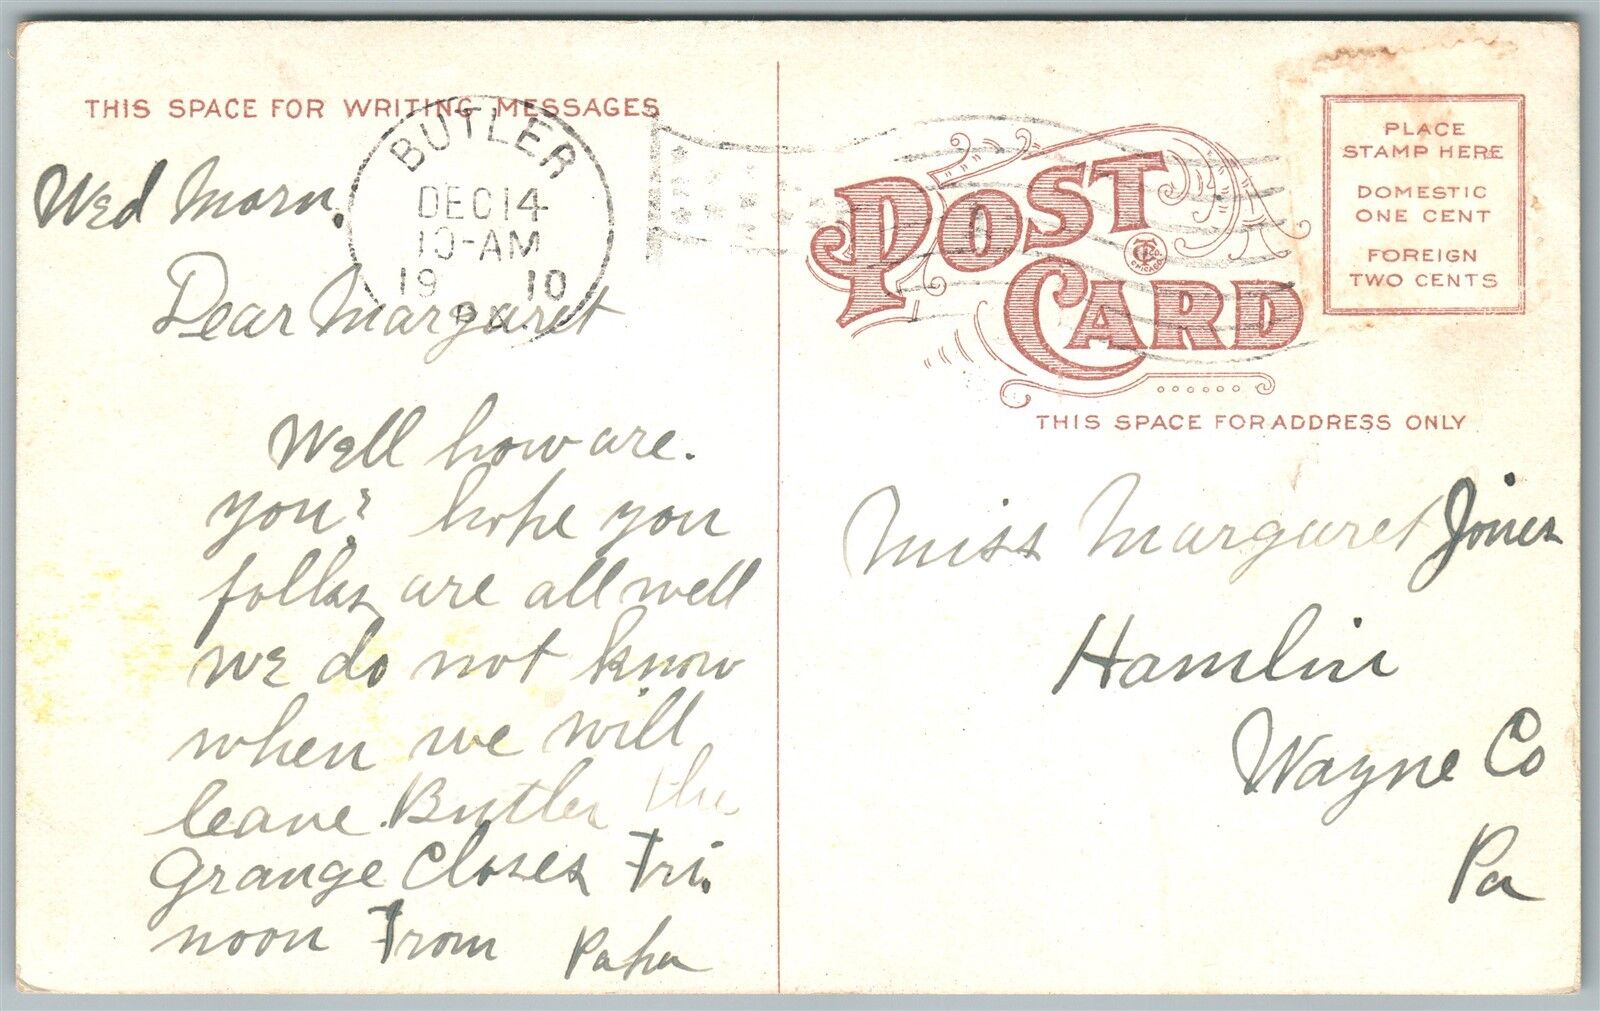 THIS SPACE FOR WRITING MESSAGES
BUTLER
DEC 14
10-AM
19 10
PA.
Wed Morn.
Dear Margaret
Well how are.
you? hope you
folks are all well
we do not know
when we will
leave. Butler the
Grange Closes Fri.
noon From Papa
POST CARD
CHICAGO
PLACE
STAMP HERE
DOMESTIC
ONE CENT
FOREIGN
TWO CENTS
THIS SPACE FOR ADDRESS ONLY
Miss Margaret Jones
Hamlin
Wayne Co
Pa